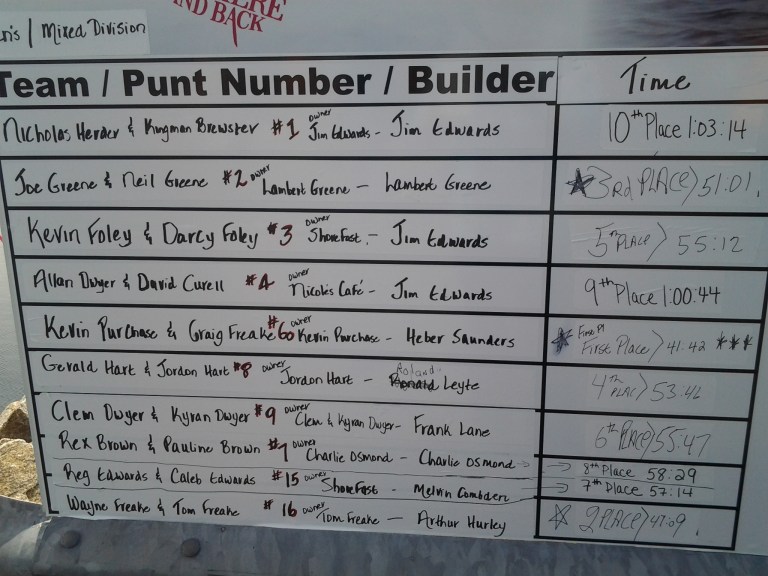 ERE
ND BACK
n's / Mixed Division
Team / Punt Number / Builder Time
Nicholas Herder & Kingman Brewster #1 owner Jim Edwards - Jim Edwards 10th Place 1:03:14
Joe Greene & Neil Greene #2 owner Lambert Greene - Lambert Greene 3rd PLACE> 51:01.
Kevin Foley & Darcy Foley #3 owner Shorefast. - Jim Edwards 5th PLACE> 55:12
Allan Dwyer & David Curell #4 owner Nicole's Café - Jim Edwards 9th Place 1:00:44
Kevin Purchase & Craig Freake #6 owner Kevin Purchase - Heber Saunders First Pl First Place> 41:42 ***
Gerald Hart & Jordon Hart #8 owner Jordon Hart - Roland Leyte 4th PLACE> 53:42
Clem Dwyer & Kyran Dwyer #9 owner Clem & Kyran Dwyer - Frank Lane 6th PLACE> 55:47
Rex Brown & Pauline Brown #7 owner Charlie Osmond - Charlie Osmond → → 8th Place 58:29
Reg Edwards & Caleb Edwards #15 owner Shorefast - Melvin Combden → 7th Place 57:14
Wayne Freake & Tom Freake #16 owner Tom Freake - Arthur Hurley 2 PLACE> 47:09.